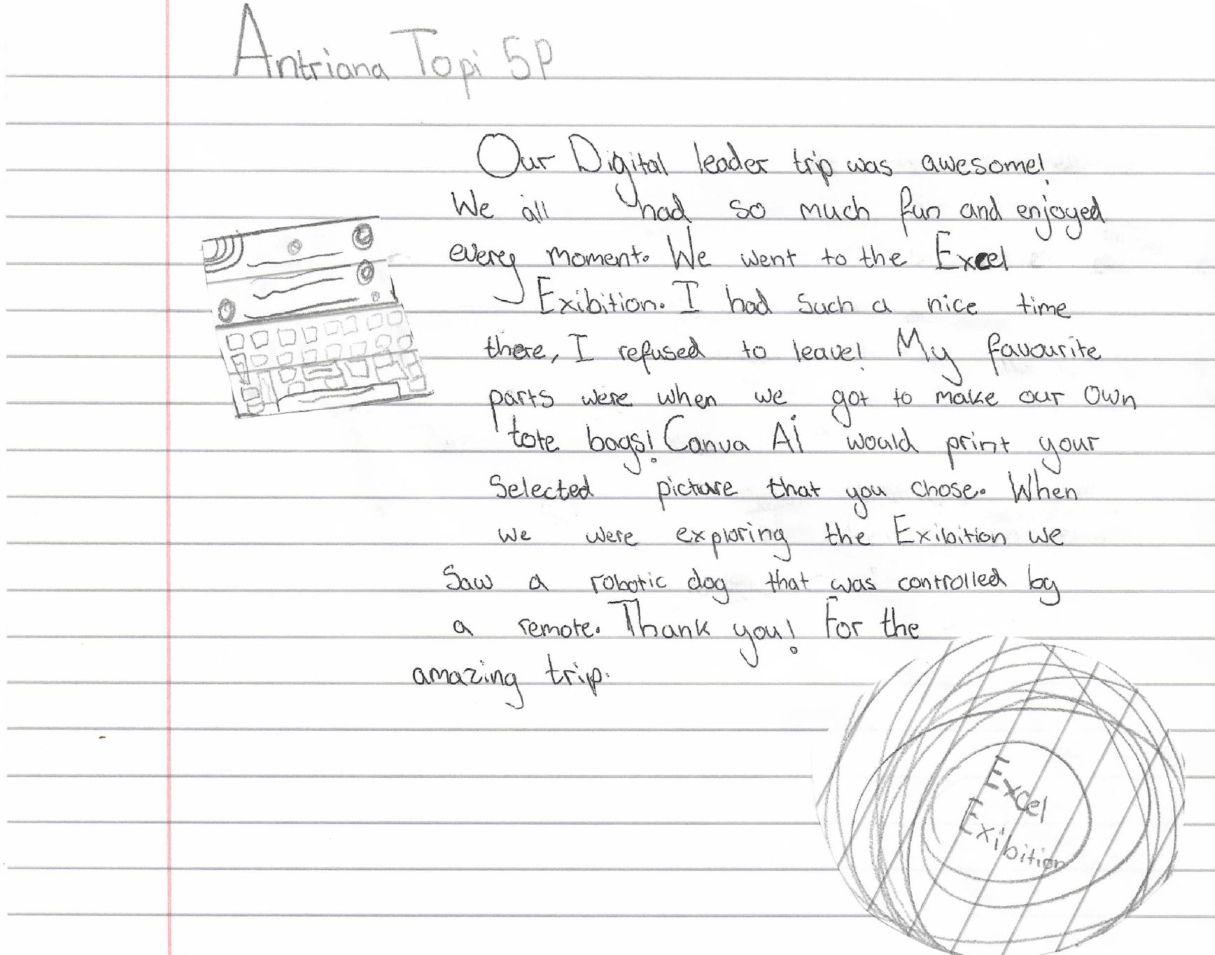 Antriana Topi 5P
Our Digital leader trip was awesome!
We all had so much fun and enjoyed
every moment. We went to the Excel
Exibition. I had such a nice time
there, I refused to leave! My favourite
parts were when we got to make our own
tote bags! Canva Ai would print your
selected picture that you chose. When
we were exploring the Exibition we
saw a robotic dog that was controlled by
a remote. Thank you! For the
amazing trip.
Excel
Exibition